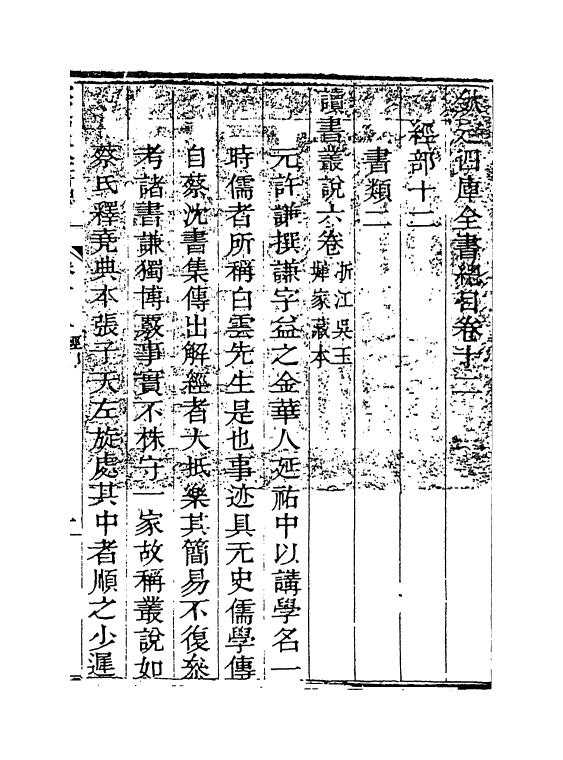 欽定四庫全書總目卷十二
經部十二
書類二
讀書叢說六卷浙江吳玉墀家藏本
元許謙撰謙字益之金華人延祐中以講學名一
時儒者所稱白雲先生是也事迹具元史儒學傳
自蔡沈書集傳出解經者大抵樂其簡易不復叅
考諸書謙獨博覈事實不株守一家故稱叢說如
蔡氏釋堯典本張子天左旋處其中者順之少遲